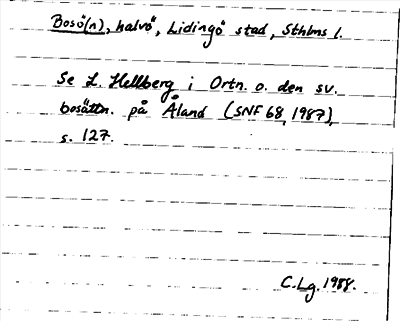 Bosö(n), halvö, Lidingö stad, Sthlms l.
Se L. Hellberg i Ortn. o. den sv.
bosättn. på Åland (SNF 68, 1987),
s. 127.
C.Lg. 1988.